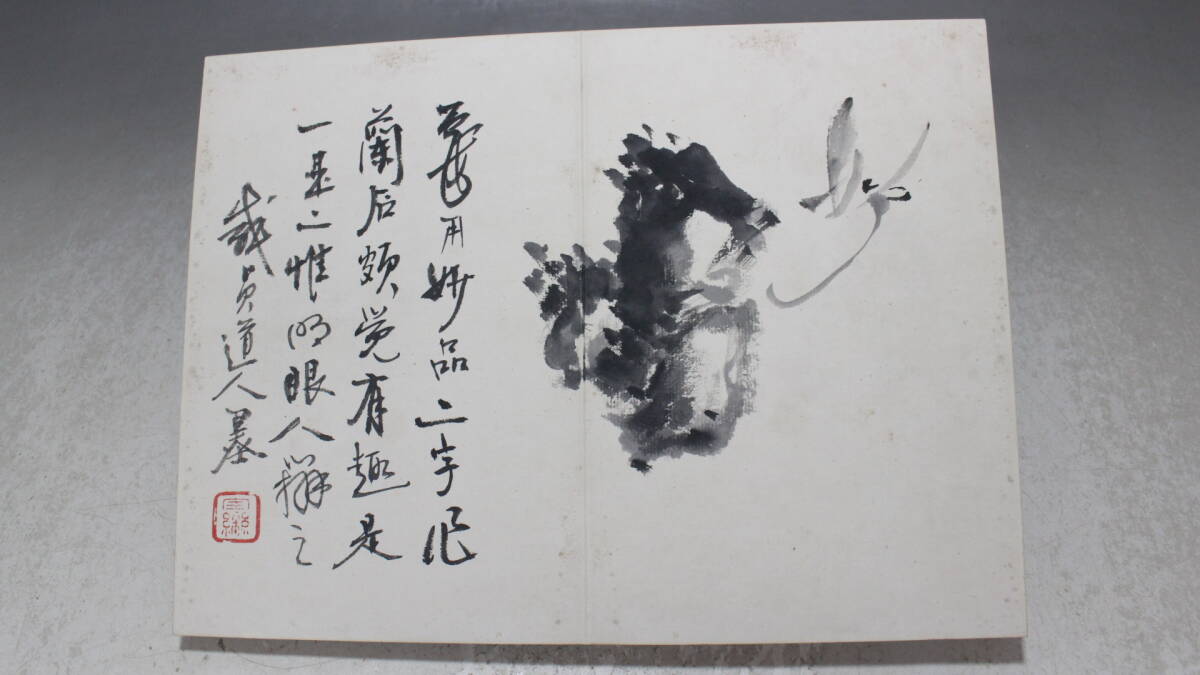 舊用妙品二字作
蘭石頗覺有趣是
一是二惟明眼人辨之
貞道人墨